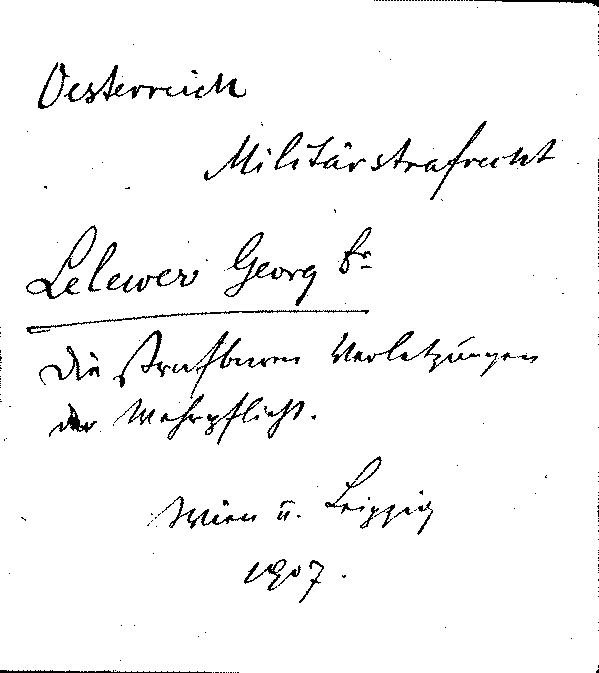 Oesterreich
Militärstrafrecht
Lelewer Georg Dr
Die strafbaren Verletzungen
der Wehrpflicht.
Wien u. Leipzig
1907.